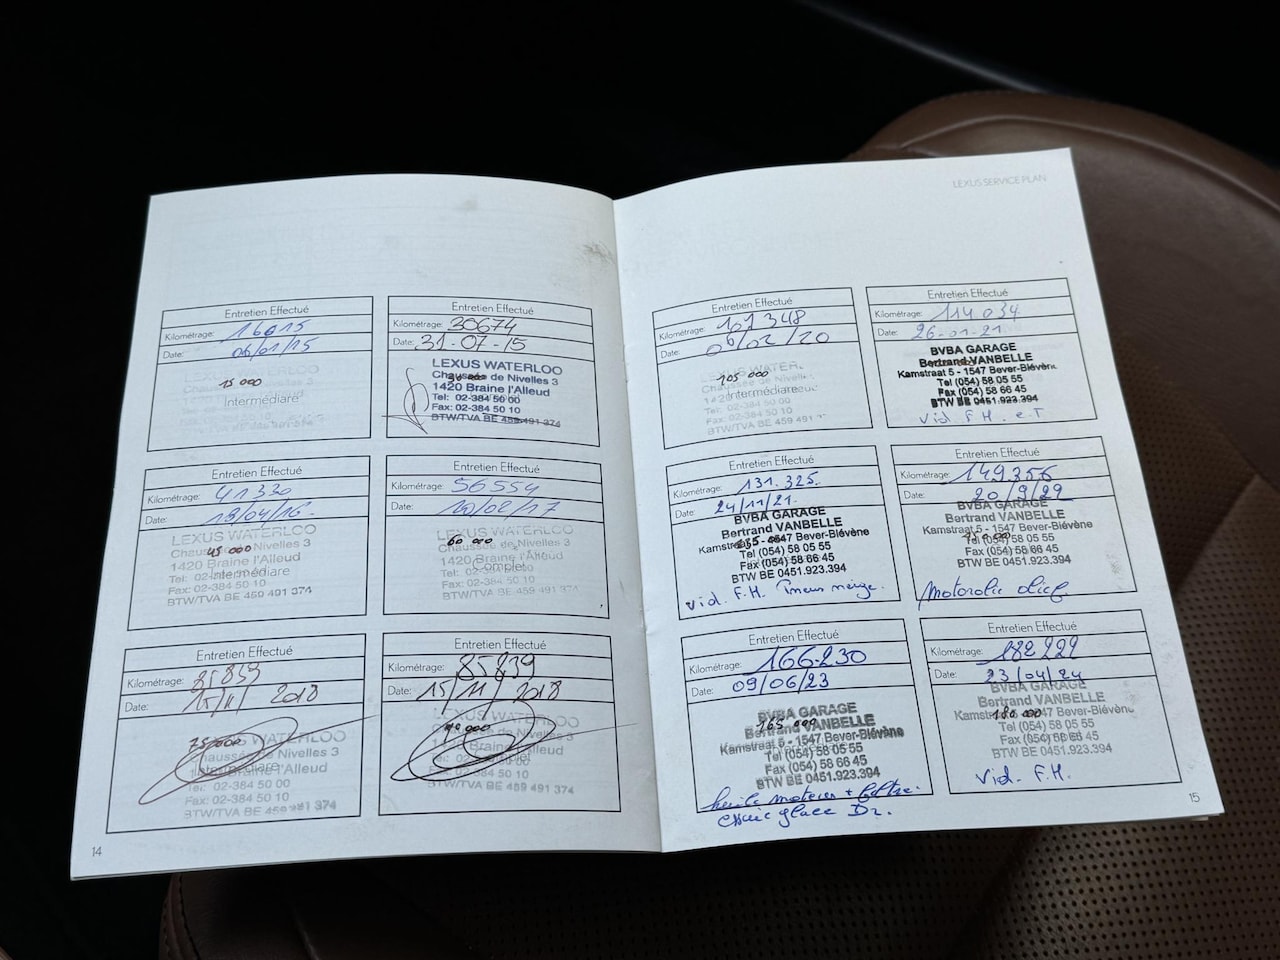 LEXUS SERVICE PLAN
Entretien Effectué
Kilométrage: 16015
Date: 06/01/15
15 000
Intermédiare
Entretien Effectué
Kilométrage: 30674
Date: 31-07-15
LEXUS WATERLOO
Chaussée de Nivelles 3
1420 Braine l'Alleud
Tel: 02-384 50 00
Fax: 02-384 50 10
BTW/TVA BE 459 491 374
Entretien Effectué
Kilométrage: 41330
Date: 18/04/16
LEXUS WATERLOO
Chaussée de Nivelles 3
45 000
1420 Braine l'Alleud
Intermédiare
Tel: 02-384 50 00
Fax: 02-384 50 10
BTW/TVA BE 459 491 374
Entretien Effectué
Kilométrage: 56554
Date: 20/02/17
LEXUS WATERLOO
60 000
Chaussée de Nivelles 3
1420 Braine l'Alleud
Complet
Tel: 02-384 50 00
Fax: 02-384 50 10
BTW/TVA BE 459 491 374
Entretien Effectué
Kilométrage: 85839
Date: 15/11/2018
75000
LEXUS WATERLOO
Chaussée de Nivelles 3
1420 Braine l'Alleud
Tel: 02-384 50 00
Fax: 02-384 50 10
BTW/TVA BE 459 491 374
Entretien Effectué
Kilométrage: 85839
Date: 15/11/2018
LEXUS WATERLOO
90 000
Chaussée de Nivelles 3
1420 Braine l'Alleud
Tel: 02-384 50 00
Fax: 02-384 50 10
BTW/TVA BE 459 491 374
14
Entretien Effectué
Kilométrage: 101348
Date: 06/02/20
105 000
Intermédiare
Tel: 02-384 50 00
Fax: 02-384 50 10
BTW/TVA BE 459 491
Entretien Effectué
Kilométrage: 114034
Date: 26-01-21
BVBA GARAGE
Bertrand VANBELLE
Kamstraat 5 - 1547 Bever-Biévène
Tel (054) 58 05 55
Fax (054) 58 66 45
BTW BE 0451.923.394
Vid. F.H. e.T
Entretien Effectué
Kilométrage: 131.325.
Date: 24/11/21.
BVBA GARAGE
Bertrand VANBELLE
Kamstraat 5 - 1547 Bever-Biévène
Tel (054) 58 05 55
Fax (054) 58 66 45
BTW BE 0451.923.394
vid. F.H. Pneus neige.
Entretien Effectué
Kilométrage: 149.356
Date: 20/9/22
BVBA GARAGE
Bertrand VANBELLE
Kamstraat 5 - 1547 Bever-Biévène
Tel (054) 58 05 55
Fax (054) 58 66 45
BTW BE 0451.923.394
Entretien Effectué
Kilométrage: 166.230
Date: 09/06/23
BVBA GARAGE
165 000
Bertrand VANBELLE
Kamstraat 5 - 1547 Bever-Biévène
Tel (054) 58 05 55
Fax (054) 58 66 45
BTW BE 0451.923.394
huile moteur + filtre.
essuie glace Dr.
Entretien Effectué
Kilométrage: 182229
Date: 23/04/24
BVBA GARAGE
Bertrand VANBELLE
180 000
Kamstraat 5 - 1547 Bever-Biévène
Tel (054) 58 05 55
Fax (054) 58 66 45
BTW BE 0451.923.394
Vid. F.H.
15